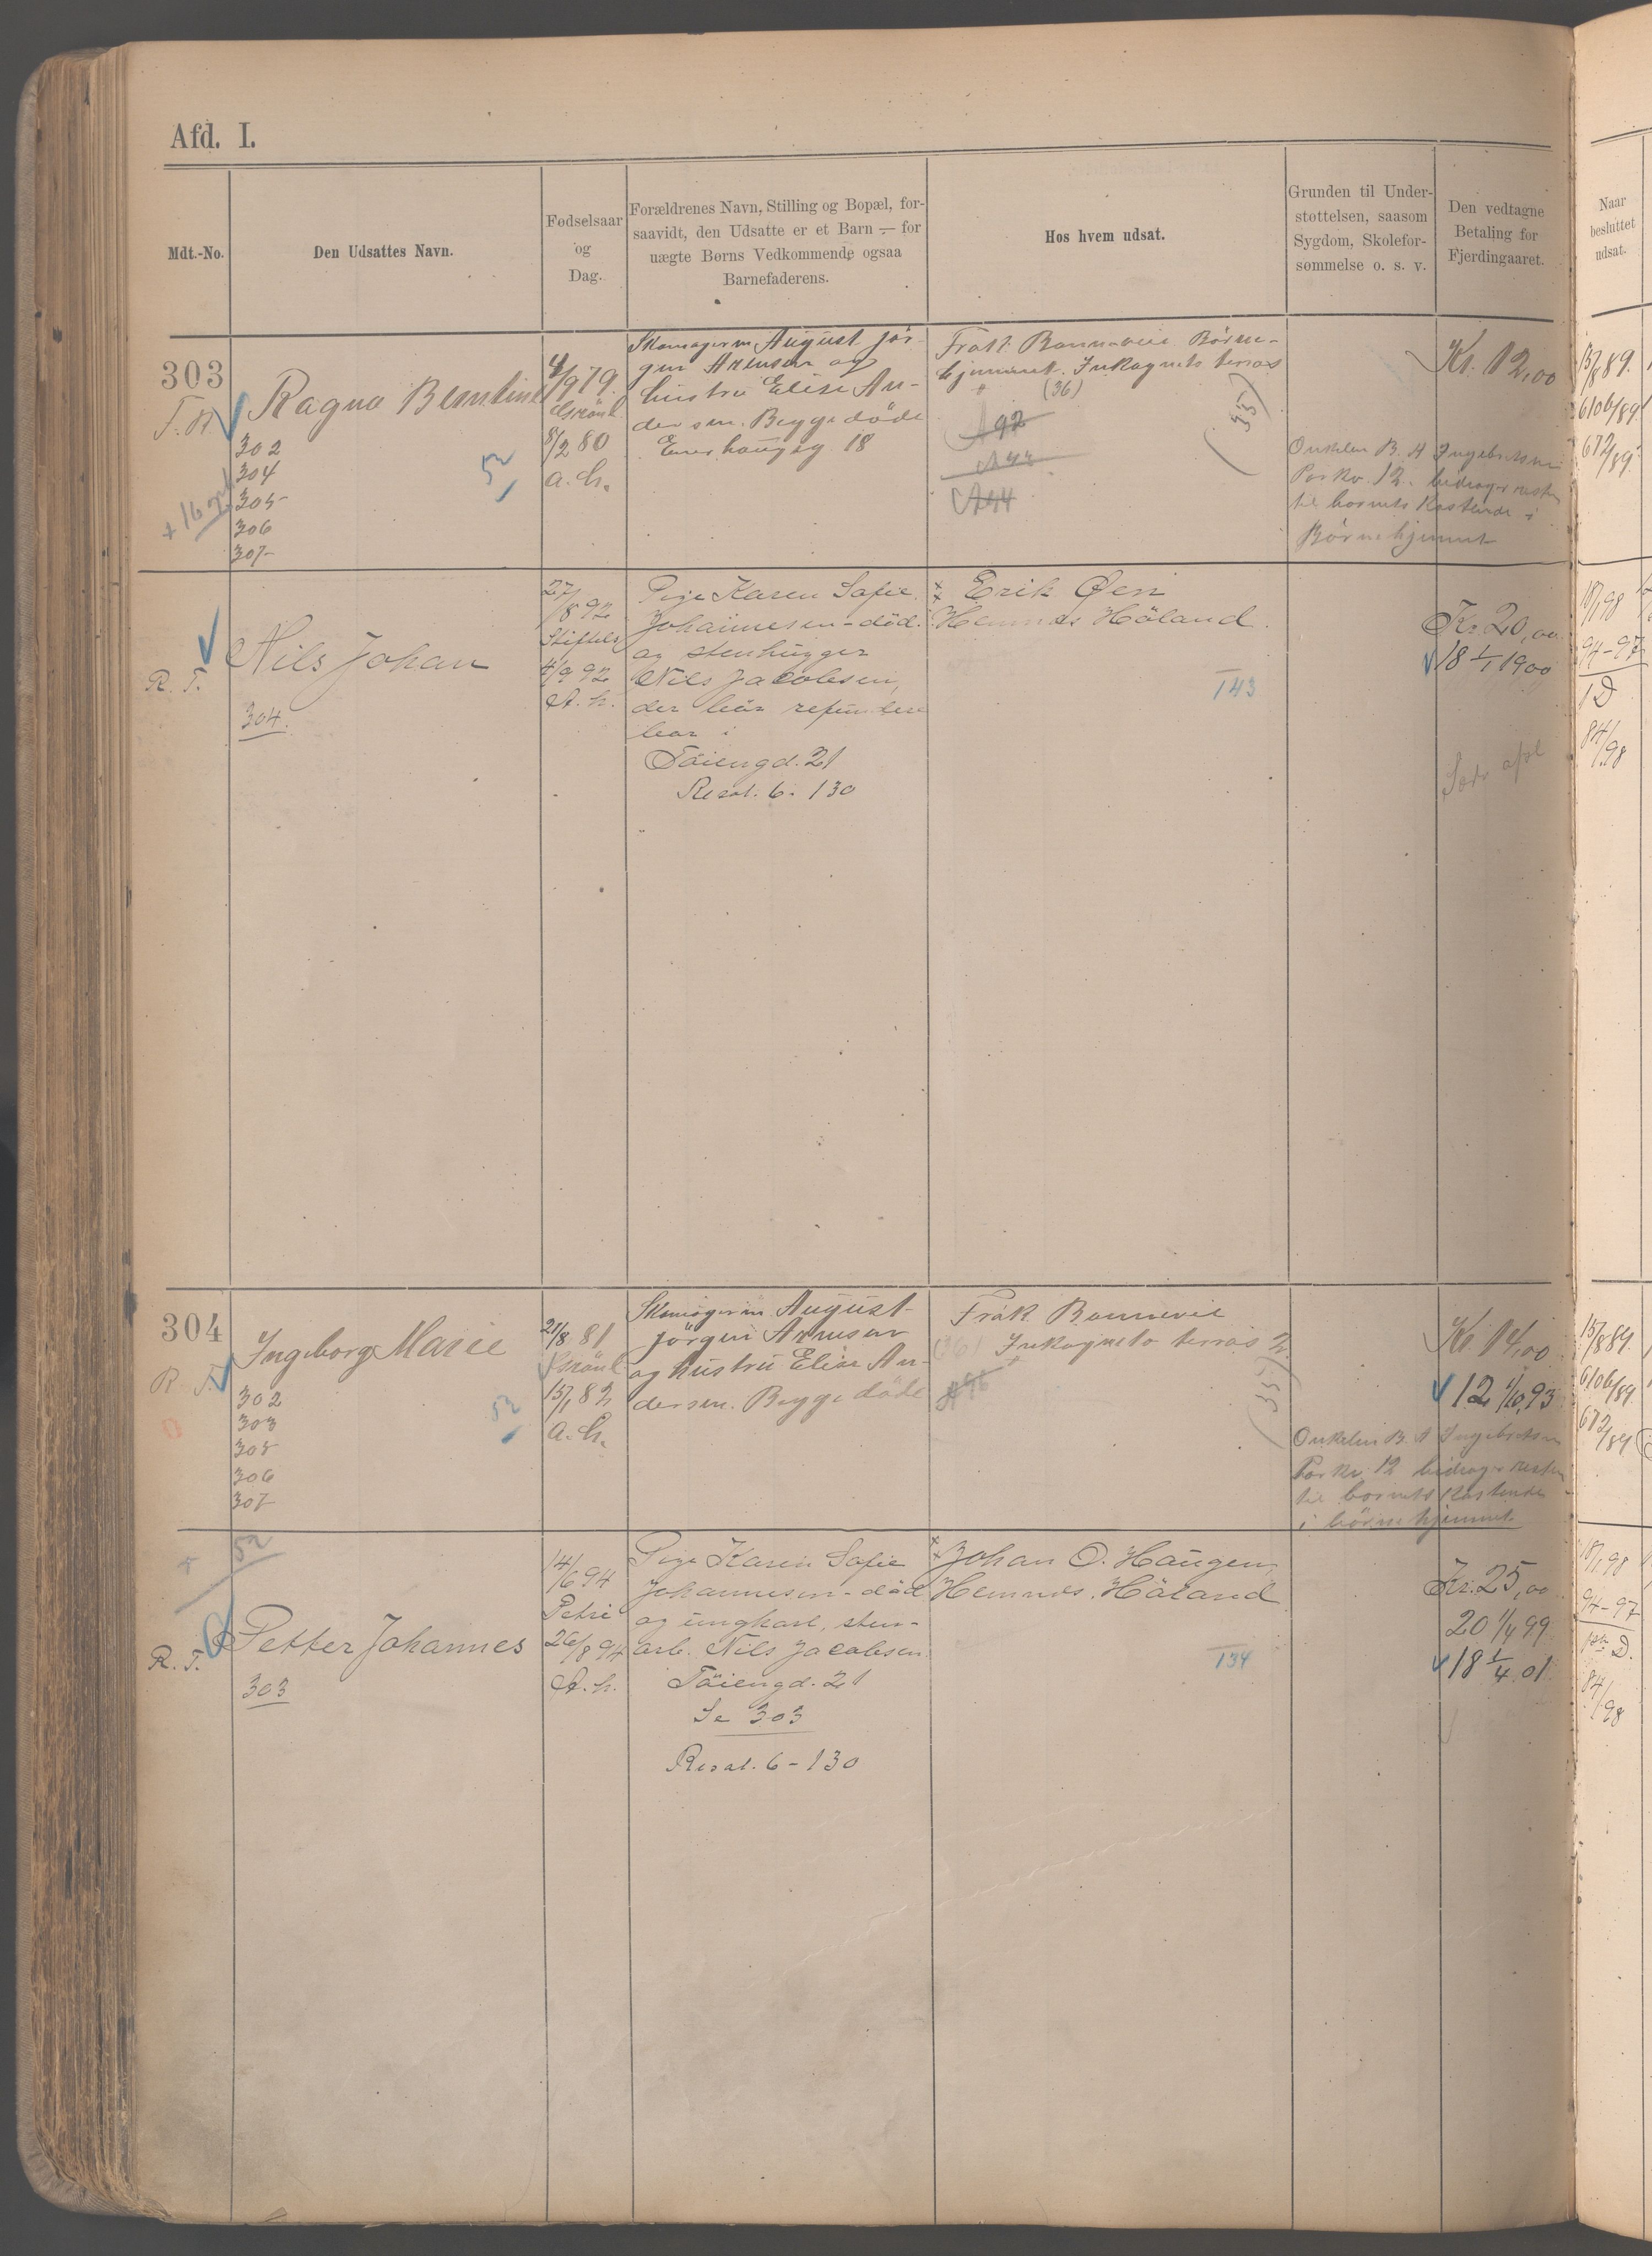 Afd. I.
Mdt.-No.
Den Udsattes Navn.
Fødselsaar
og
Dag.
Forældrenes Navn, Stilling og Bopæl, for-
saavidt, den Udsatte er et Barn — for
uægte Børns Vedkommende ogsaa
Barnefaderens.
Hos hvem udsat.
Grunden til Under-
støttelsen, saasom
Sygdom, Skolefor-
sømmelse o. s. v.
Den vedtagne
Betaling for
Fjerdingaaret.
Naar
besluttet
udsat.
303
Ragna Berntine
302
304
305
306
307
52
4/9 79.
Grönl.
8/2 80
a. h.
Skomagerm August Jör-
gen Arensen og
hustru Elise An-
dersen. Begge döde
Enerhaugsg 18
Frøk. Bonnevie Börne-
hjemmet. Inkognito terras
(36)
A 92
A 44
(35)
Onkelen B. A Ingebretsen
Por kv. 12. bidrager resten
til barnets Kostende i
Börnehjemmet
Kr. 12,00
15/8 89.
6106/89
672/89.
R. T.
Nils Johan
304.
27/8 92
Stiftels
4/9 92
A. h.
Pige Karen Sofie
Johannesen - död.
og stenhugger
Nils Jacobsen,
der bör refundere
bor i
Töiengd. 21
Resol. 6. 130
Erik Øen
Hemnes Höland.
143
Kr. 20,00
18 1/1 1900
18/1 98
94-97
1 D
84/98
304
R. T.
Ingeborg Marie
302
303
305
306
307
52
21/8 81
Grönl.
15/1 82
a. h.
Skomagerm August
Jörgen Arensen
og hustru Elise An-
dersen. Begge döde
Frøk Bonnevie
(36) Inkognito terras 2.
(35)
Onkelen B. A Ingebretsen
Por kv. 12 bidrager resten
til barnets Kostende
i börnehjemmet
Kr. 14,00
12 1/10 93
15/8 89.
6106/89.
672/89
52
R. T.
Petter Johannes
303
14/6 94
Petri
26/8 94
A. h.
Pige Karen Sofie
Johannesen - död
og ungkarl, sten-
arb. Nils Jacobsen
Töiengd. 21
Se 303
Resol. 6 - 130
Johan O. Haugen,
Hemnes. Höland
134
Kr. 25,00
20 1/4 99
18 1/4 01
18/1 98
94-97
D.
84/98